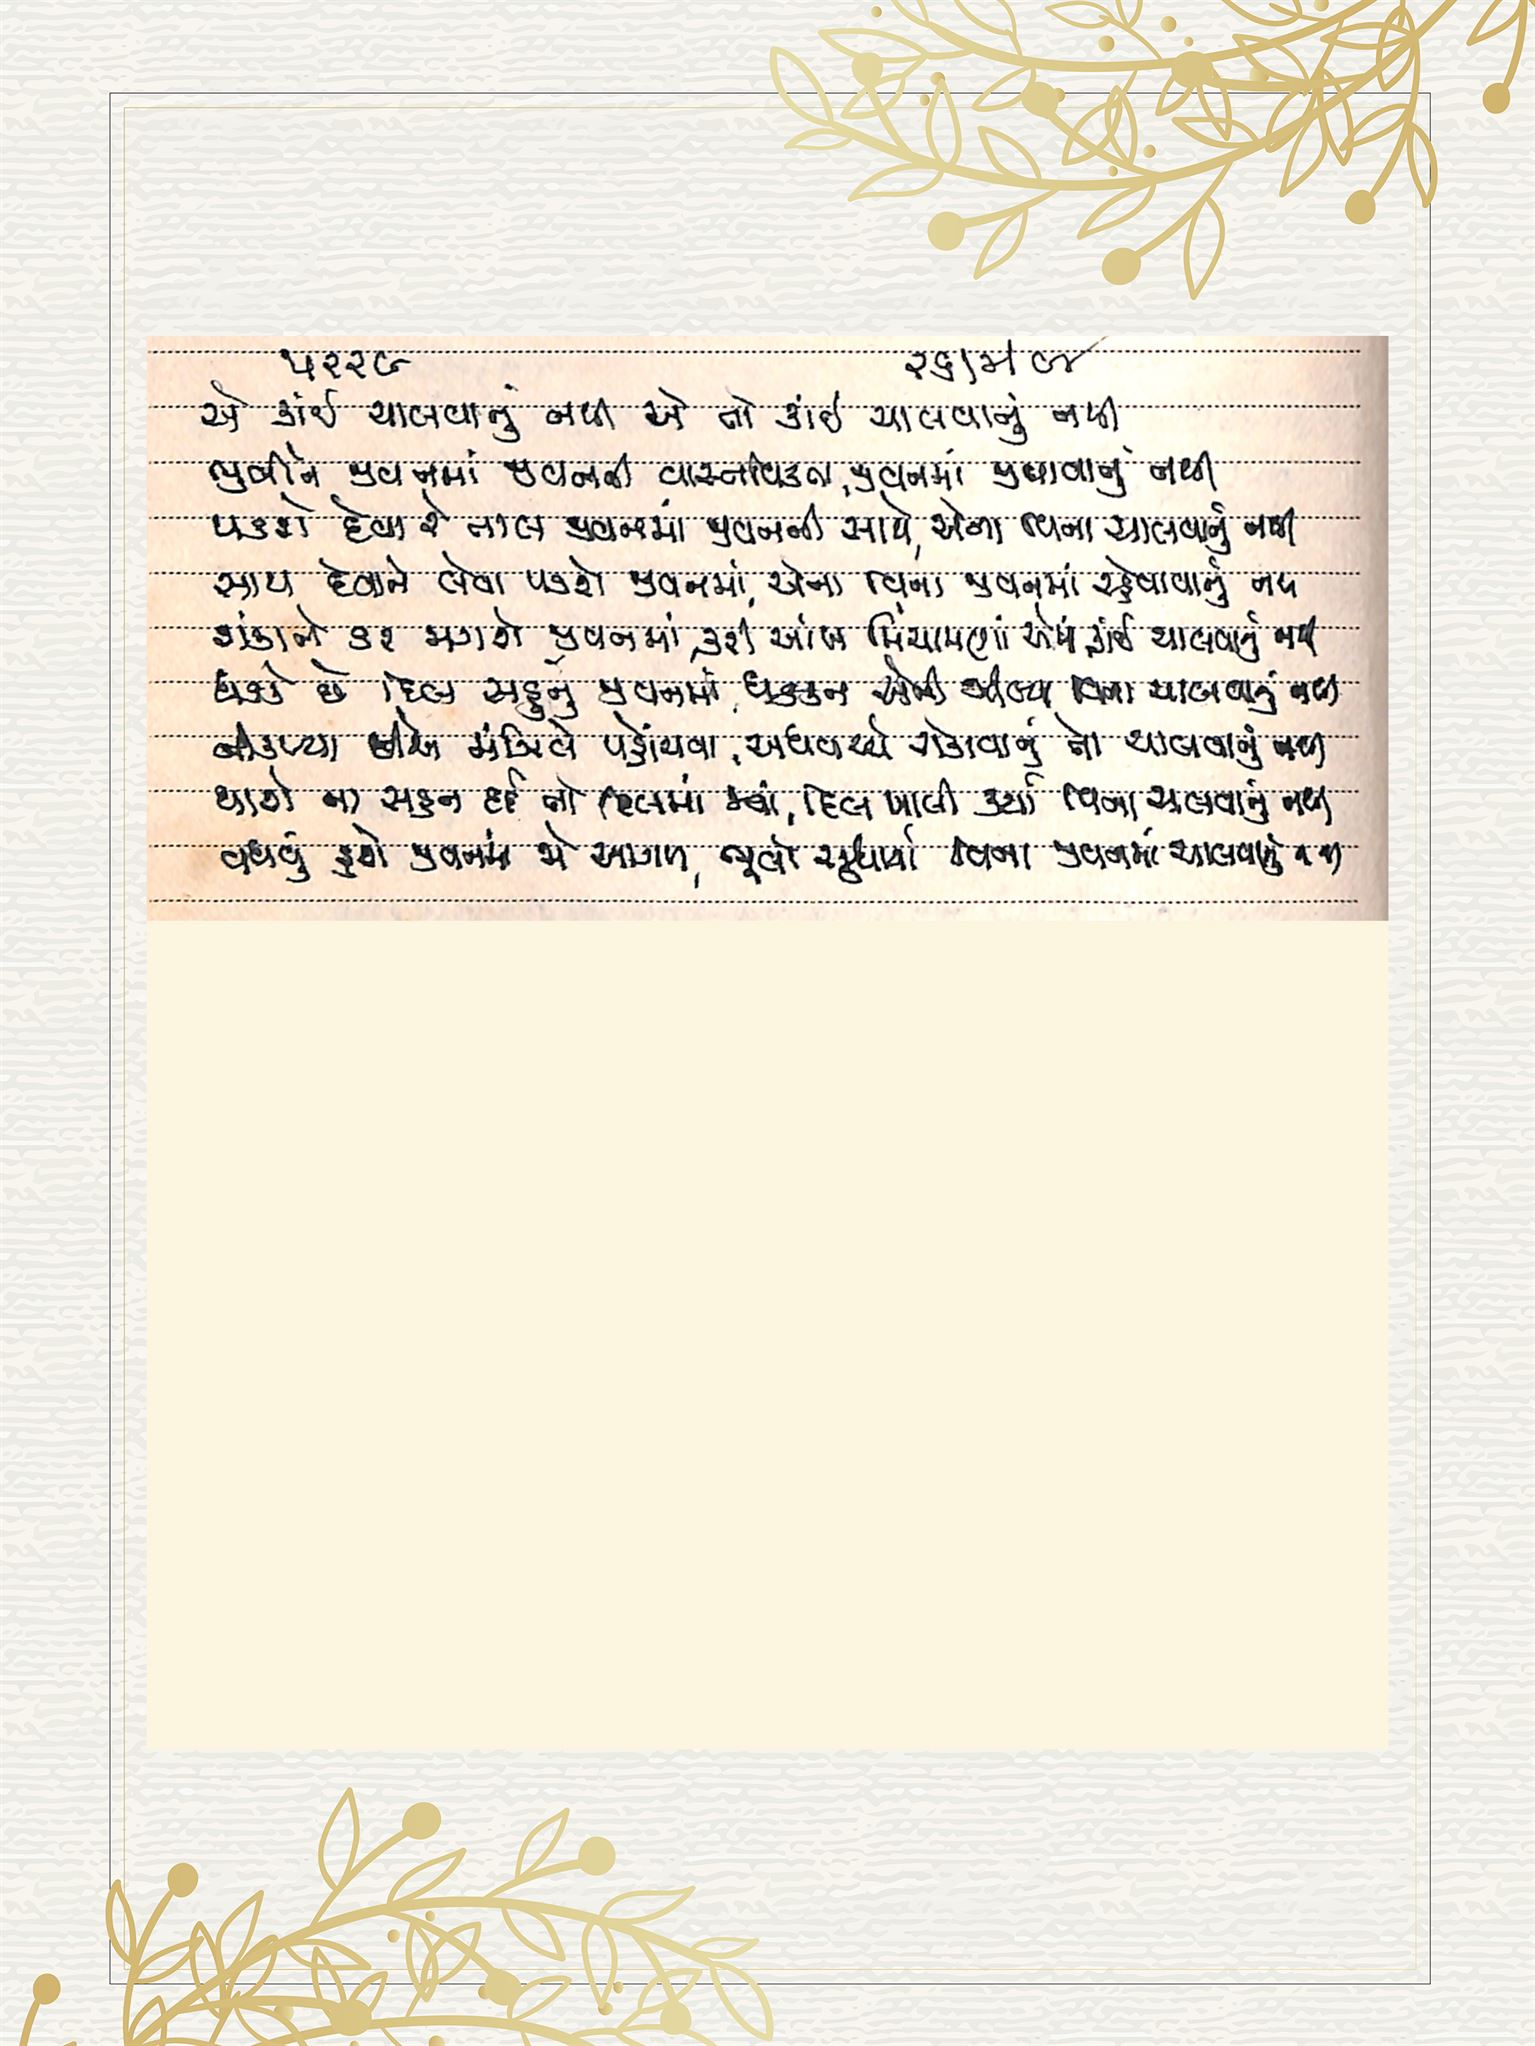 ૫૨૨૯
એ કાંઈ ચાલવાનું નથી એ તો કાંઈ ચાલવાનું નથી
ભુલીને જીવનમાં જીવનની વાસ્તવિકતા, જીવનમાં જીવાવાનું નથી
પડશે દેવા રે તાલ જીવનમાં જીવનની સાથે, એના વિના ચાલવાનું નથી
સાથ દેવાને લેવા પડશે જીવનમાં, એના વિના જીવનમાં રહેવાવાનું નથ
શંકાને કર મગશે જીવનમાં, કરી આંખ મિંચામણાં એમાં કાંઈ ચાલવાનું નથી
ધડકે છે દિલ સહુનું જીવનમાં, ધડકન એની ઝીલ્યા વિના ચાલવાનું નથી
નીકળ્યા છીએ મંઝિલે પહોંચવા, અધવચ્ચે રોકાવાનું તો ચાલવાનું નથી
થાશે ના સહન દર્દ તો દિલમાં જ્યાં, દિલ ખાલી કર્યા વિના ચાલવાનું નથી
વધવું હશે જીવનમાં જો આગળ, ભૂલો સુધાર્યા વિના જીવનમાં ચાલવાનું નથી